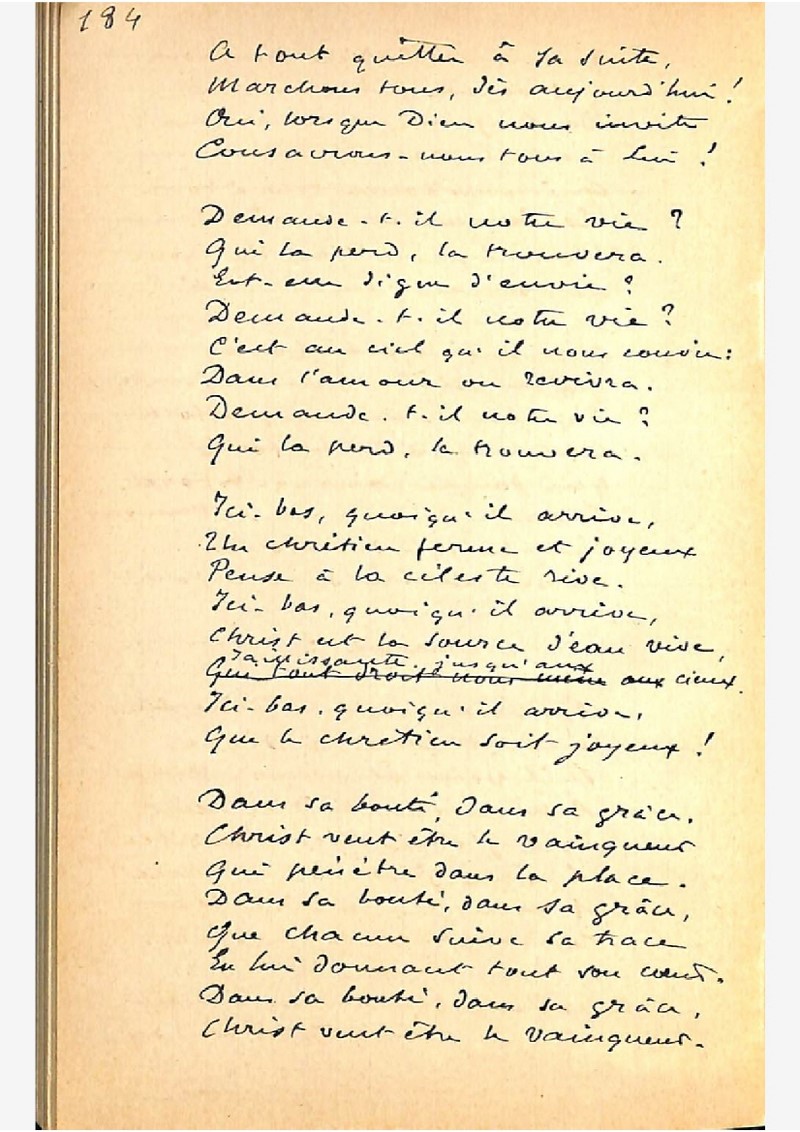 184
A tout quitter à sa suite,
Marchons tous, dès aujourd'hui !
Oui, lorsque Dieu nous invite
Consacrons-nous tous à Lui !
Demande-t-il notre vie ?
Qui la perd, la trouvera.
Est-elle digne d'envie ?
Demande-t-il notre vie ?
C'est au ciel qu'il nous convie :
Dans l'amour on revivra.
Demande-t-il notre vie ?
Qui la perd, la trouvera.
Ici-bas, quoiqu'il arrive,
Un chrétien ferme et joyeux
Pense à la céleste rive.
Ici-bas, quoiqu'il arrive,
Christ est la source d'eau vive,
Jaillissante jusqu'aux
Qui tout droit nous mène aux cieux.
Ici-bas, quoiqu'il arrive,
Que le chrétien soit joyeux !
Dans sa bonté, dans sa grâce,
Christ veut être le vainqueur
Qui pénètre dans la place.
Dans sa bonté, dans sa grâce,
Que chacun suive sa trace
En lui donnant tout son cœur.
Dans sa bonté, dans sa grâce,
Christ veut être le vainqueur.